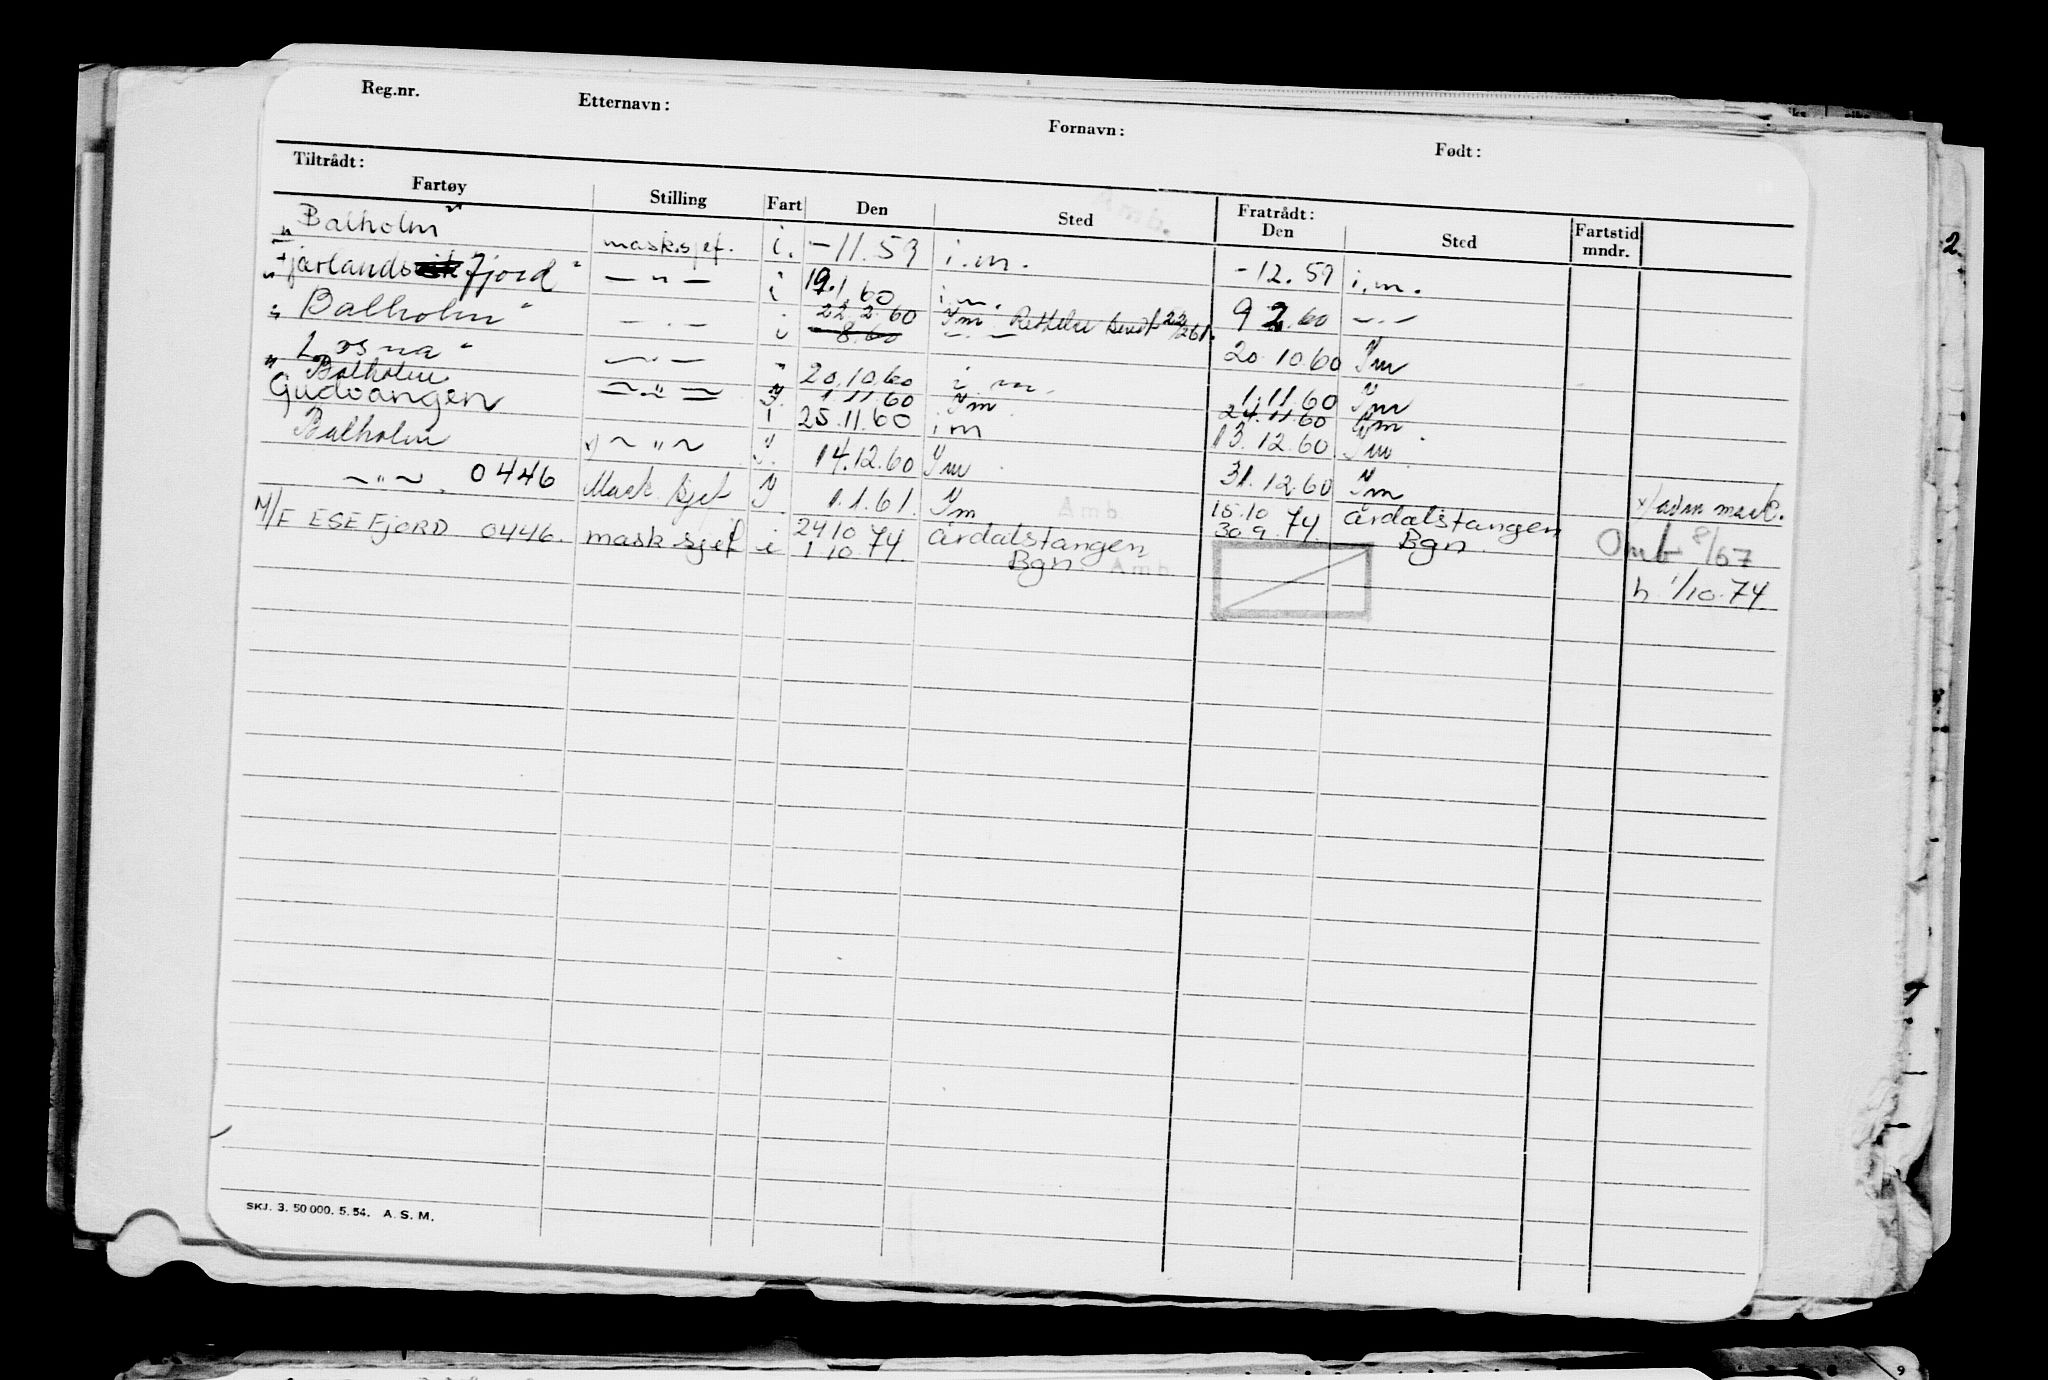 Reg.nr. Etternavn: Fornavn: Født:
Tiltrådt: Fratrådt:
Fartøy Stilling Fart Den Sted Den Sted Fartstid mndr.
"Balholm" mask.sjef. i. -11.59 i.m. -12.59 i.m.
"Fjærlandsfjord" — " — i 19.1.60 i.m. 9 2.60 — " —
"Balholm" — " — i 22.2.60 Im Rettelse sendt 22/2 61. 20.10.60 Im
8.60 — " —
"Losna" — " — 20.10.60 i m. 1.11.60 Im
"Balholm — " — 1.11.60 Im 24.11.60 Im
Gudvangen — " — i 25.11.60 im 13.12.60 Im
Balholm x) — " — I. 14.12.60 Im 31.12.60 Im x/adm mask.
— " — . 0446 Mask sjef I 1.1.61. Im 15.10 74 Årdalstangen Omb 8/67
M/F ESEFJORD 0446. mask sjef i 2410 74 Årdalstangen 30.9.74. Bgn.
1 10.74 Bgn. Amb. h 1/10.74
SKJ. 3. 50 000. 5. 54. A. S. M.